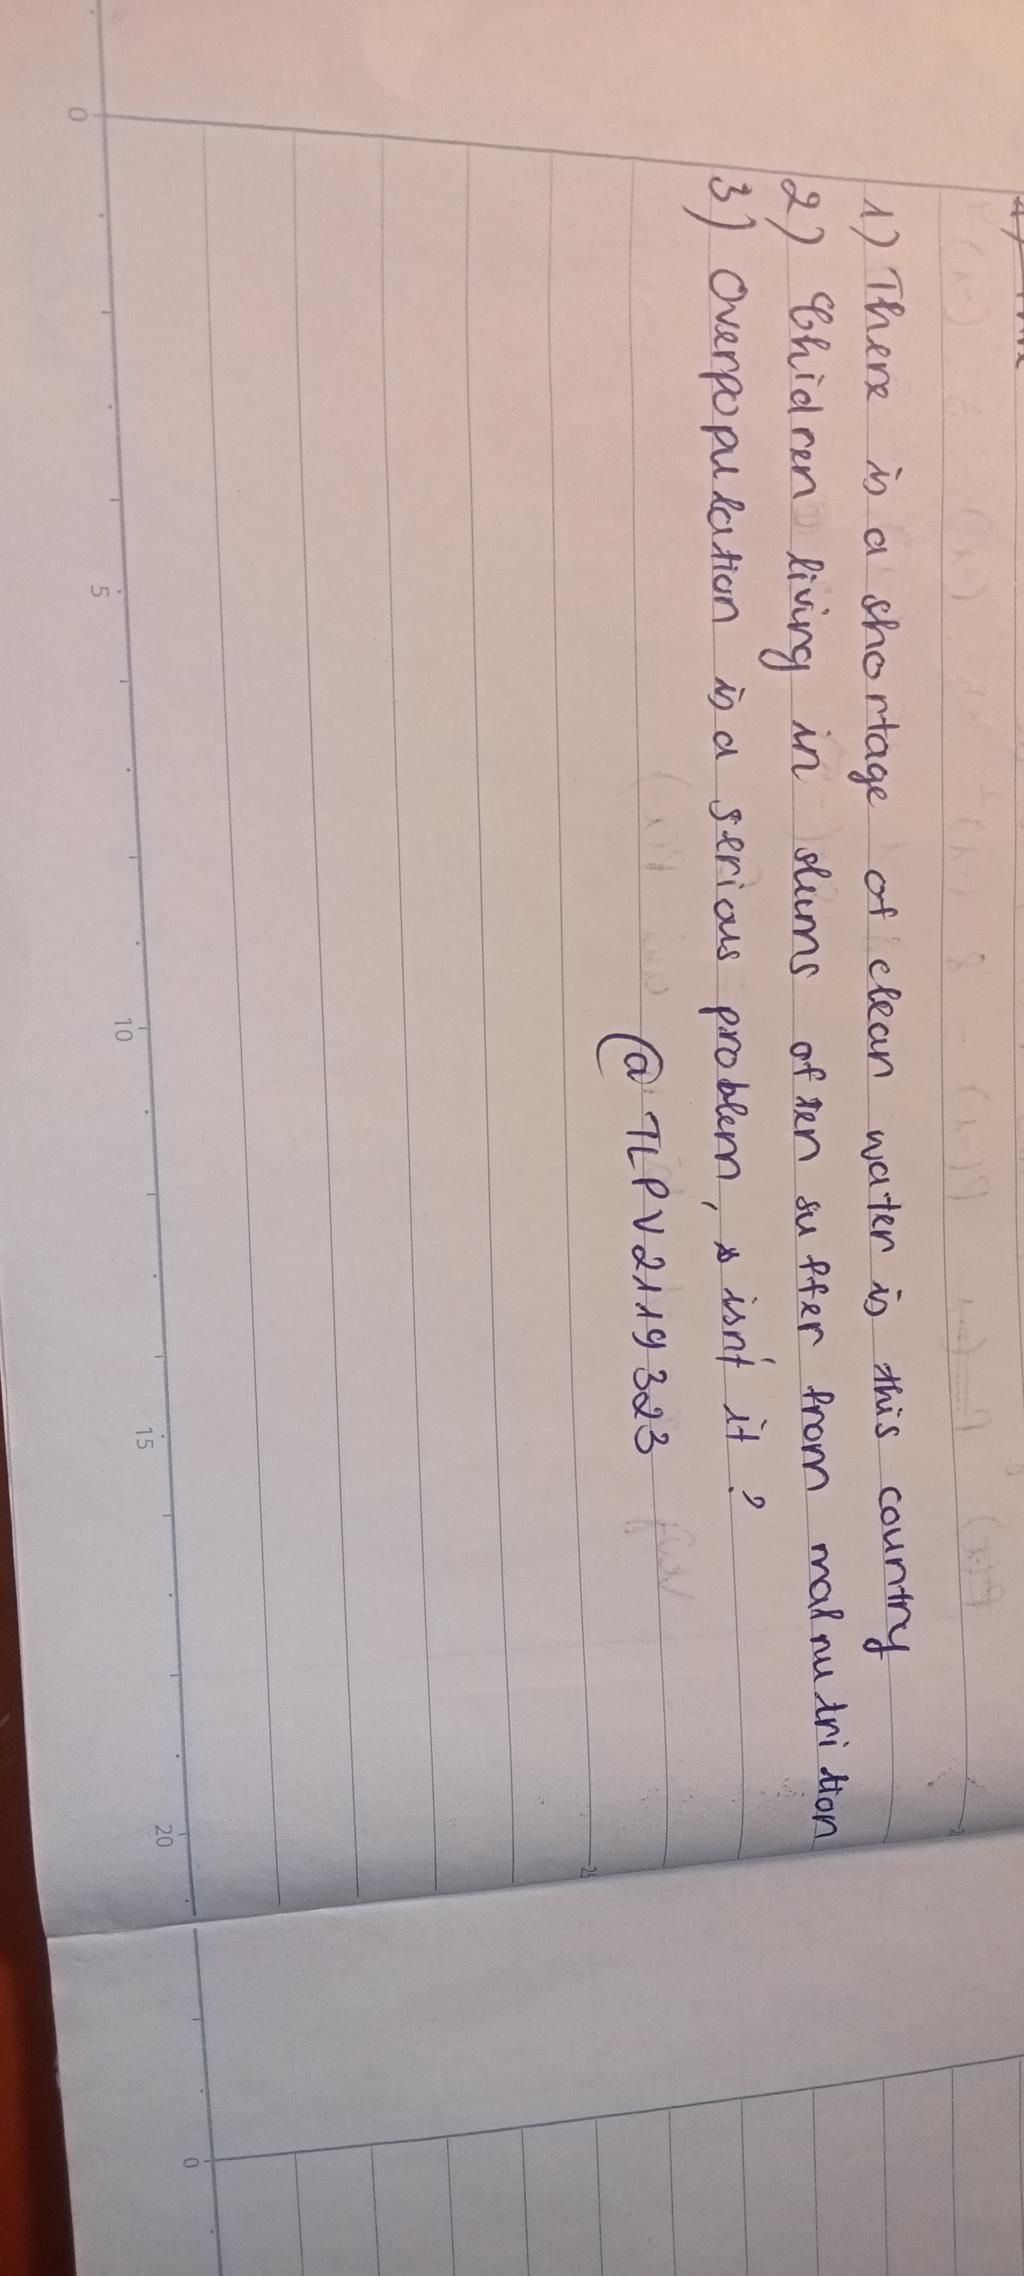 1) There is a shortage of clean water is this country
2) Chidren living in slums often suffer from malnutrition
3) Overpopulation is a serious problem, isn't it?
@TLPV2119323
0
5
10
15
20
25
0